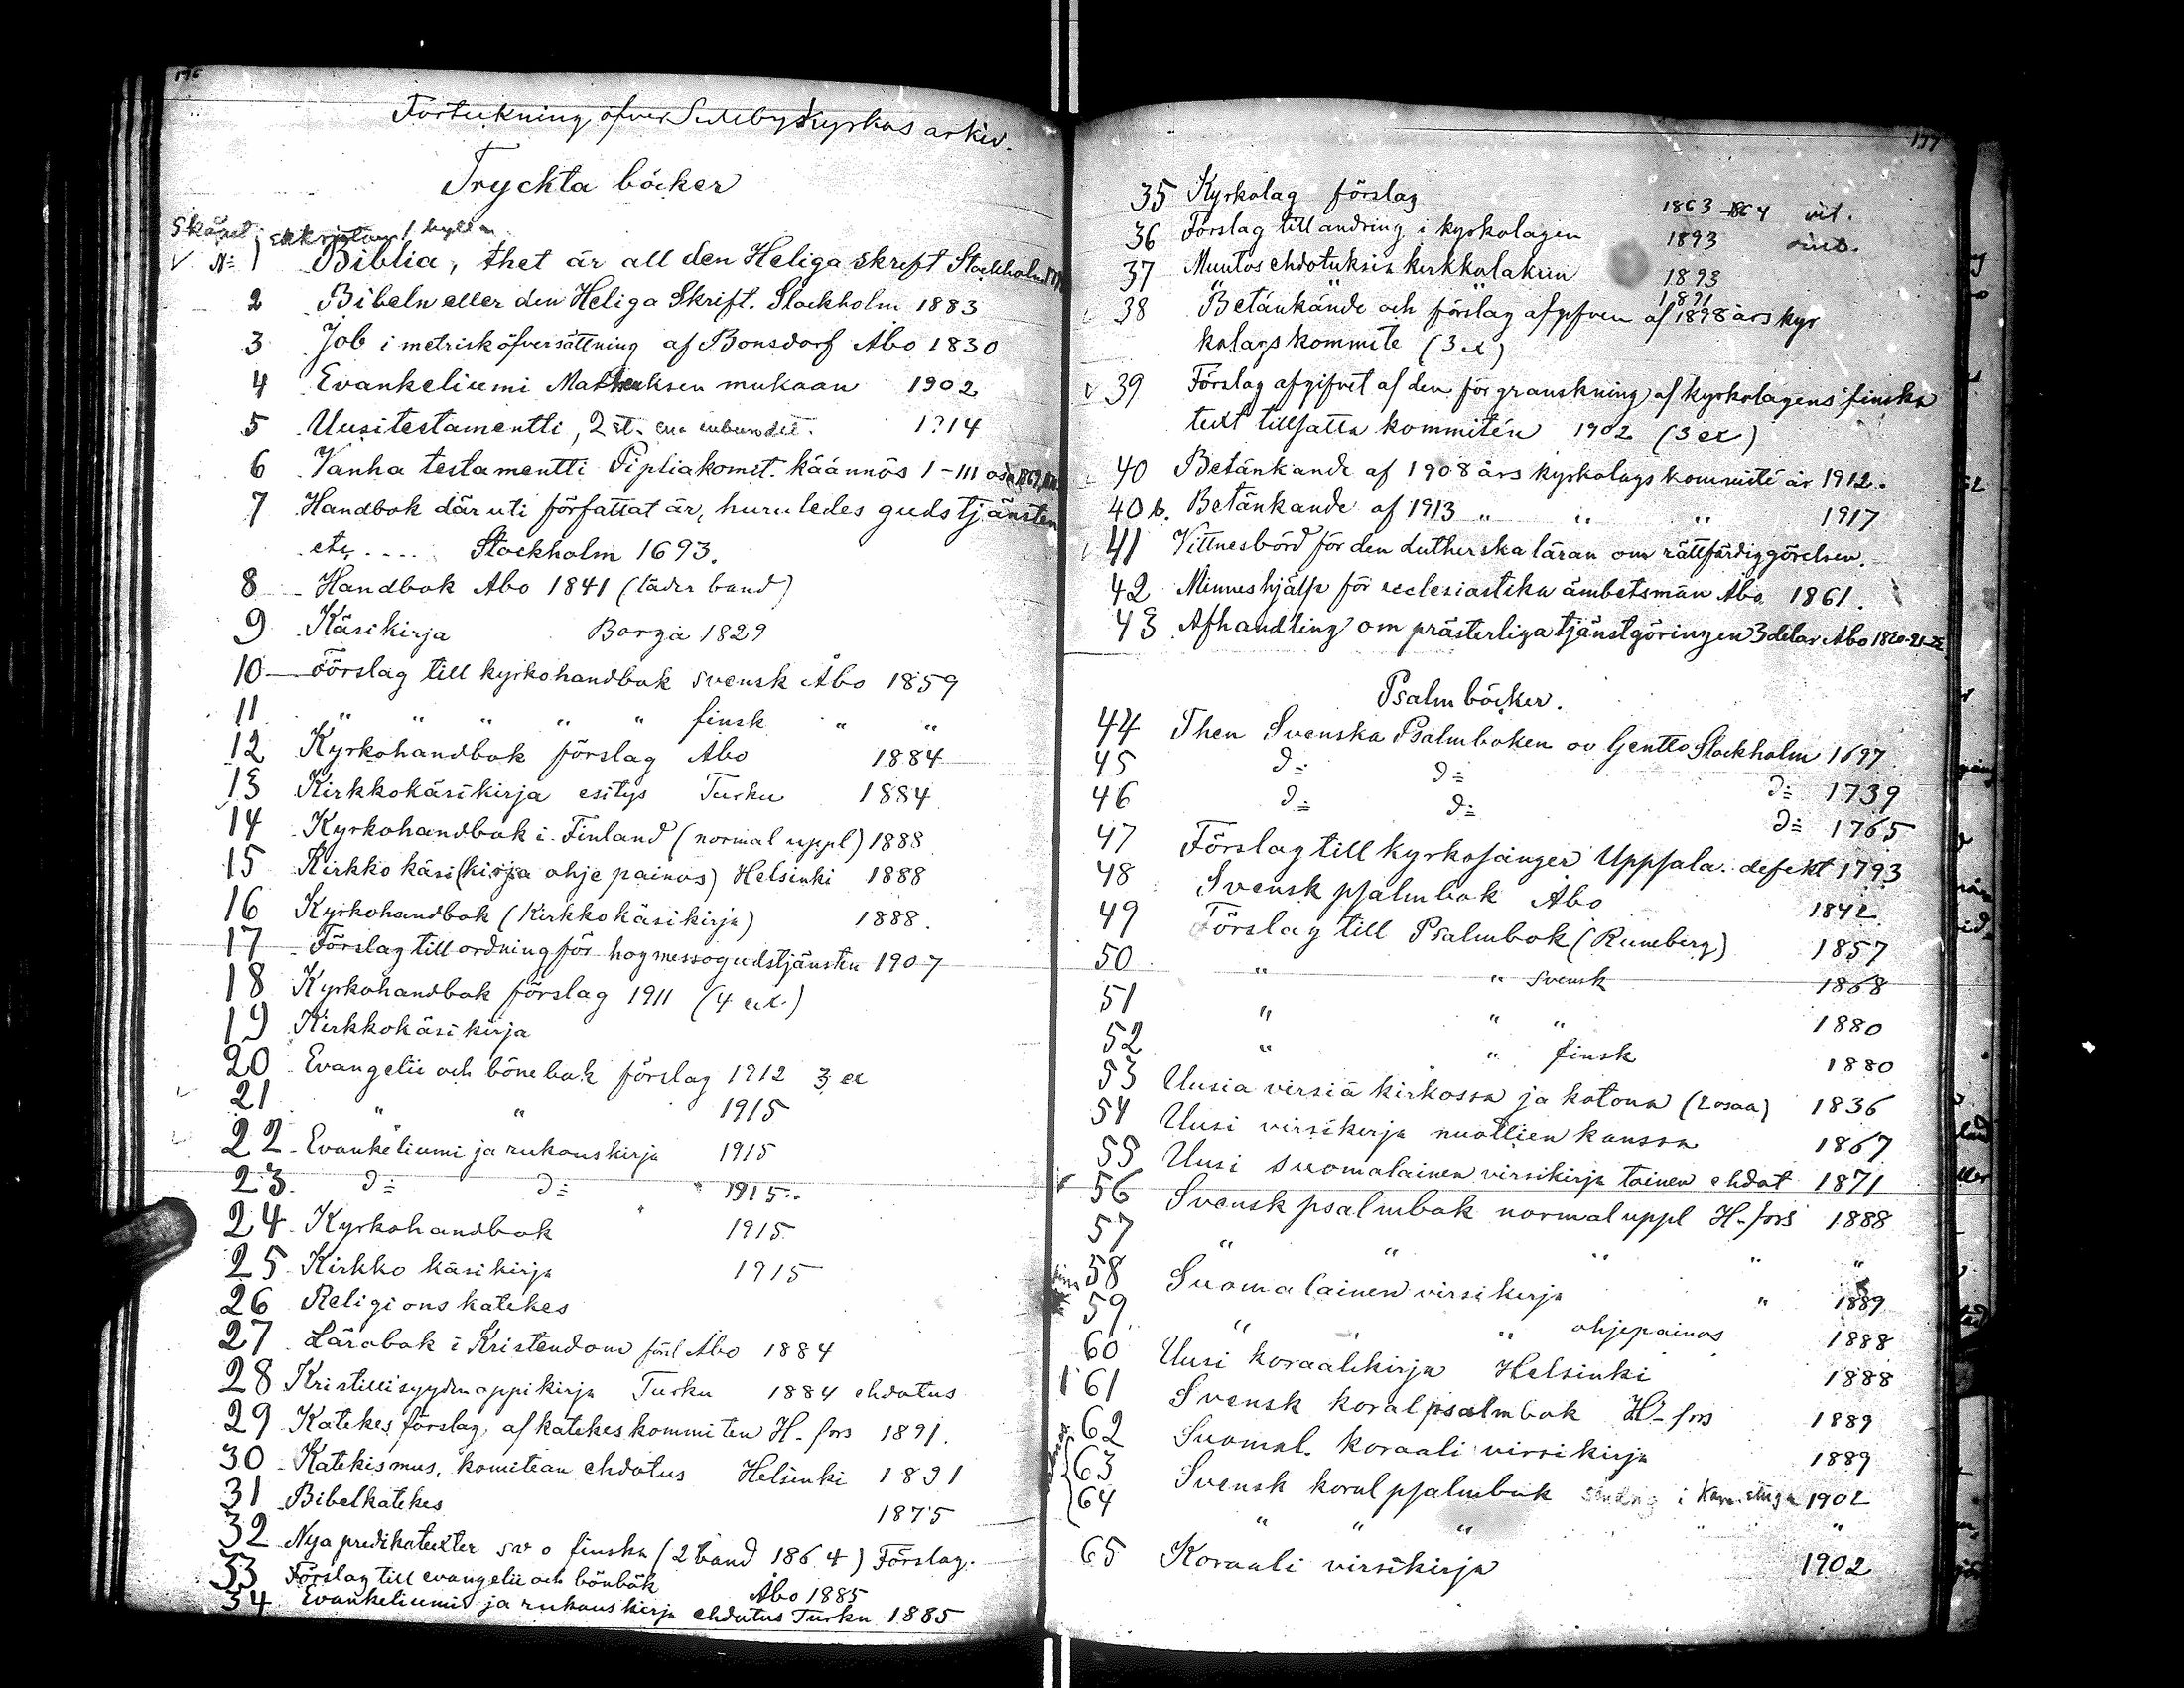 176
Förteckning öfver Sideby kyrkas arkiv.
Tryckta böcker
Skåpet i sakristian 1 hyllan
V № 1 Biblia, thet är all den Heliga skrift Stockholm
2 Bibeln eller den Heliga Skrift. Stockholm 1883
3 Job i metrisk öfversättning af Bonsdorf Åbo 1830
4 Evankeliumi Matheuksen mukaan 1902
5 Uusitestamentti, 2 st. en inbunden. 1914
6 Vanha testamentti Pipliakomit. käännös I-III osa
7 Handbok däruti författat är, huruledes gudstjänsten
etc .... Stockholm 1693.
8 Handbok Åbo 1841 (läder band)
9 Käsikirja Borgå 1829
10 Förslag till kyrkohandbok svensk Åbo 1859
11 " " " " " finsk " "
12 Kyrkohandbok förslag Åbo 1884
13 Kirkkokäsikirja esitys Turku 1884
14 Kyrkohandbok i Finland (normal uppl) 1888
15 Kirkko käsi(kirja ohje painos) Helsinki 1888
16 Kyrkohandbok (Kirkkokäsikirja) 1888.
17 Förslag till ordning för hogmessogudstjänsten 1907
18 Kyrkohandbok förslag 1911 (4 ex.)
19 Kirkkokäsikirja
20 Evangelii och bönebok förslag 1912 3 ex
21 " " 1915
22 Evankeliumi ja rukouskirja 1915
23. d:= d:= " 1915.
24 Kyrkohandbok 1915
25 Kirkko käsikirja 1915
26 Religions katekes
27 Lärobok i Kristendom förl Åbo 1884
28 Kristillisyyden oppikirja Turku 1884 ehdotus
29 Katekes förslag af katekeskommiten H-fors 1891.
30 Katekismus, komitean ehdotus Helsinki 1891
31 Bibelkatekes 1875
32 Nya predikotexter sv o finska (2 band 1864) Förslag.
33 Förslag till evangelii och bönbok Åbo 1885
34 Evankeliumi ja rukouskirja ehdotus Turku 1885
177
35 Kyrkolag förslag 1863-1864
36 Förslag till andring i kyrkolagen 1893
37 Muutosehdotuksia kirkkolakiin 1893
1891
38 Betänkande och förslag afgifven af 1898 års kyr
kolagskommite (3 ex)
v 39 Förslag afgifvet af den för granskning af kyrkolagens finska
text tillsatta kommitén 1902 (3 ex)
40 Betänkande af 1908 års kyrkolagskommité år 1912.
40 b. Betänkande af 1913 " " " 1917
41 Vittnesbörd för den Lutherska läran om rättfärdiggörelsen.
42 Minneshjälp för ecclesiastika ämbetsmän Åbo 1861.
43 Afhandling om prästerliga tjänstgöringen 3 delar Åbo 1820-21-22
Psalmböcker.
44 Then Svenska Psalmboken ov Gentto Stockholm 1697
45 d:= d:= d:= 1739
46 d:= d:= d:= 1765
47 Förslag till kyrkosånger Uppsala. defekt 1793
48 Svensk psalmbok Åbo 1842
49 Förslag till Psalmbok (Runeberg) 1857
50 " " svensk 1868
51 " " " 1880
52 " " finsk 1880
53 Uusia virsiä kirkossa ja kotona (2 osaa) 1836
54 Uusi virsikirja nuottien kanssa 1867
55 Uusi suomalainen virsikirja toinen ehdot 1871
56 Svensk psalmbok normaluppl H-fors 1888
57 " " " " "
58 Suomalainen virsikirja " 1889
59 " " " ohjepainos 1888
60 Uusi koraalikirja Helsinki 1888
1 61 Svensk koralpsalmbok H-fors 1889
62 Suomal. koraali virsikirja 1889
63 Svensk koralpsalmbok 1902
64 " " " "
65 Koraali virsikirja 1902